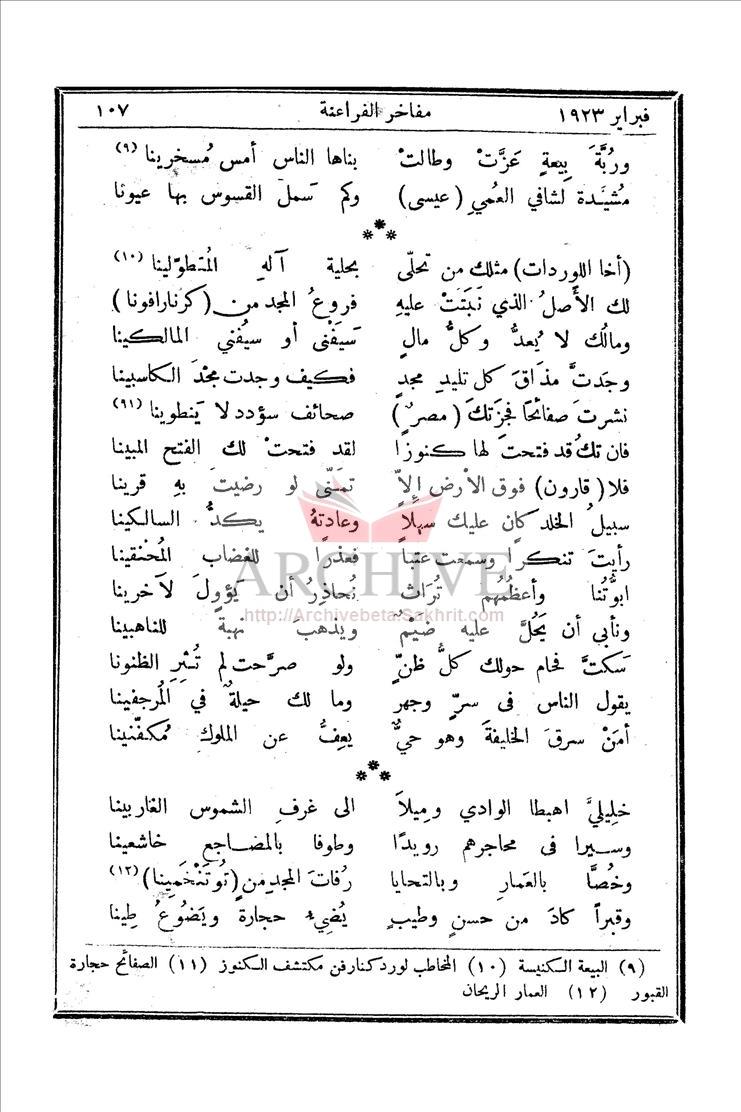 فبراير ١٩٢٣ مفاخر الفراعنة ١٠٧
ورُبَّةَ بِيعةٍ عَزَّتْ وطالتْ بناها الناس أمس مُسخرينا (٩)
مُشيَّدة لشافي العُميِ (عيسى) وكم سَملَ القسوس بها عيونا
***
(أخا اللوردات) مثلك من تحلَّى بحلية آلهِ المُتطوّلينا (١٠)
لك الأصلُ الذي نَبَتَتْ عليهِ فروعُ المجد من (كرنارافونا)
ومالُك لا يُعدُّ وكلُّ مالٍ سَيَفْنى أو سيُفني المالكينا
وجَدتَ مذاقَ كل تليدِ مجدٍ فكيف وجدت مجْدَ الكاسبينا
نشرتَ صفائحًا فجزتكَ (مصرٌ) صحائف سؤدد لا يَنطوينا (٩١)
فان تكُ قد فتحتَ لها كنوزًا لقد فتحتْ لك الفتح المبينا
فلا (قارون) فوق الأرض إلاّ تمَنّى لو رضيتَ بهِ قرينا
سبيلُ الخلد كان عليك سهلاً وعادتهُ يكدُّ السالكينا
رأيتَ تنكرًا وسمعت عتبًا فعذرًا للغضاب المُحْنقينا
ابوَّتُنا وأعظُمُهم تُراثٌ نُحاذِرُ أن يَؤولَ لآخرينا
ونأبي أن يَحُلَّ عليه ضَيْمٌ ويذهب نهبةً للناهبينا
سَكتَّ فحام حولك كلُّ ظنٍّ ولو صرَّحت لم تُثِرِ الظنونا
يقول الناس في سرٍّ وجهرٍ وما لك حيلةٌ في المُرجفينا
أمَنْ سرقَ الخليفةَ وهو حيٌّ يعِفُّ عن الملوك مُكفَّنينا
***
خليليَّ اهبطا الوادي ومِيلاَ الى غرفِ الشموس الغاربينا
وسيرا في محاجرهم رويدًا وطوفا بالمضاجع خاشعينا
وخُصَّا بالعَمارِ وبالتحايا رُفاتَ المجد من (تُوتَنْخَمِينا) (١٢)
وقبراً كادَ من حسنٍ وطيبٍ يُضيءُ حجارةً ويَضُوعُ طِينا
(٩) البيعة الكنيسة (١٠) المخاطب لورد كنارفن مكتشف الكنوز (١١) الصفائح حجارة
القبور (١٢) العمار الريحان
ARCHIVE
http://Archivebeta.Sakhrit.com